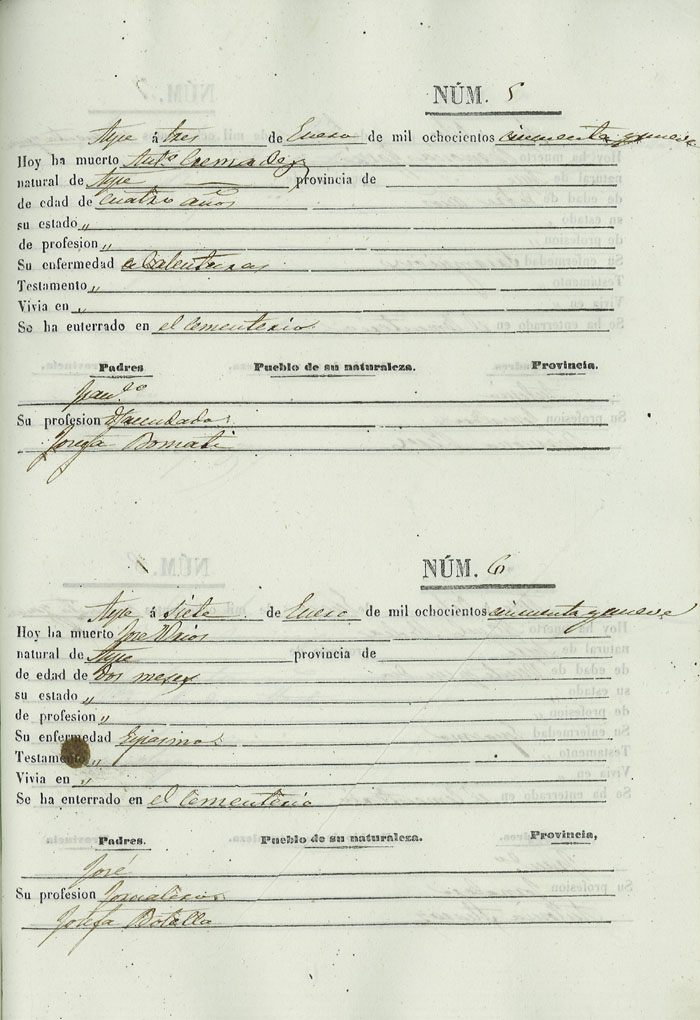 NÚM. 5
Aspe á tres de Enero de mil ochocientos cincuenta y nueve
Hoy ha muerto Antº Cremades
natural de Aspe provincia de
de edad de cuatro años
su estado „
de profesion „
Su enfermedad Calenturas
Testamento „
Vivia en „
Se ha enterrado en el Cementerio
Padres Pueblo de su naturaleza. Provincia.
Franco
Su profesion Hacendado
Josefa Bomati
NÚM. 6
Aspe á siete de Enero de mil ochocientos cincuenta y nueve
Hoy ha muerto José
natural de Aspe provincia de
de edad de Dos meses
su estado „
de profesion „
Su enfermedad Espasmo
Testamento „
Vivia en „
Se ha enterrado en el Cementerio
Padres. Pueblo de su naturaleza. Provincia,
José
Su profesion Jornalero
Josefa Botella